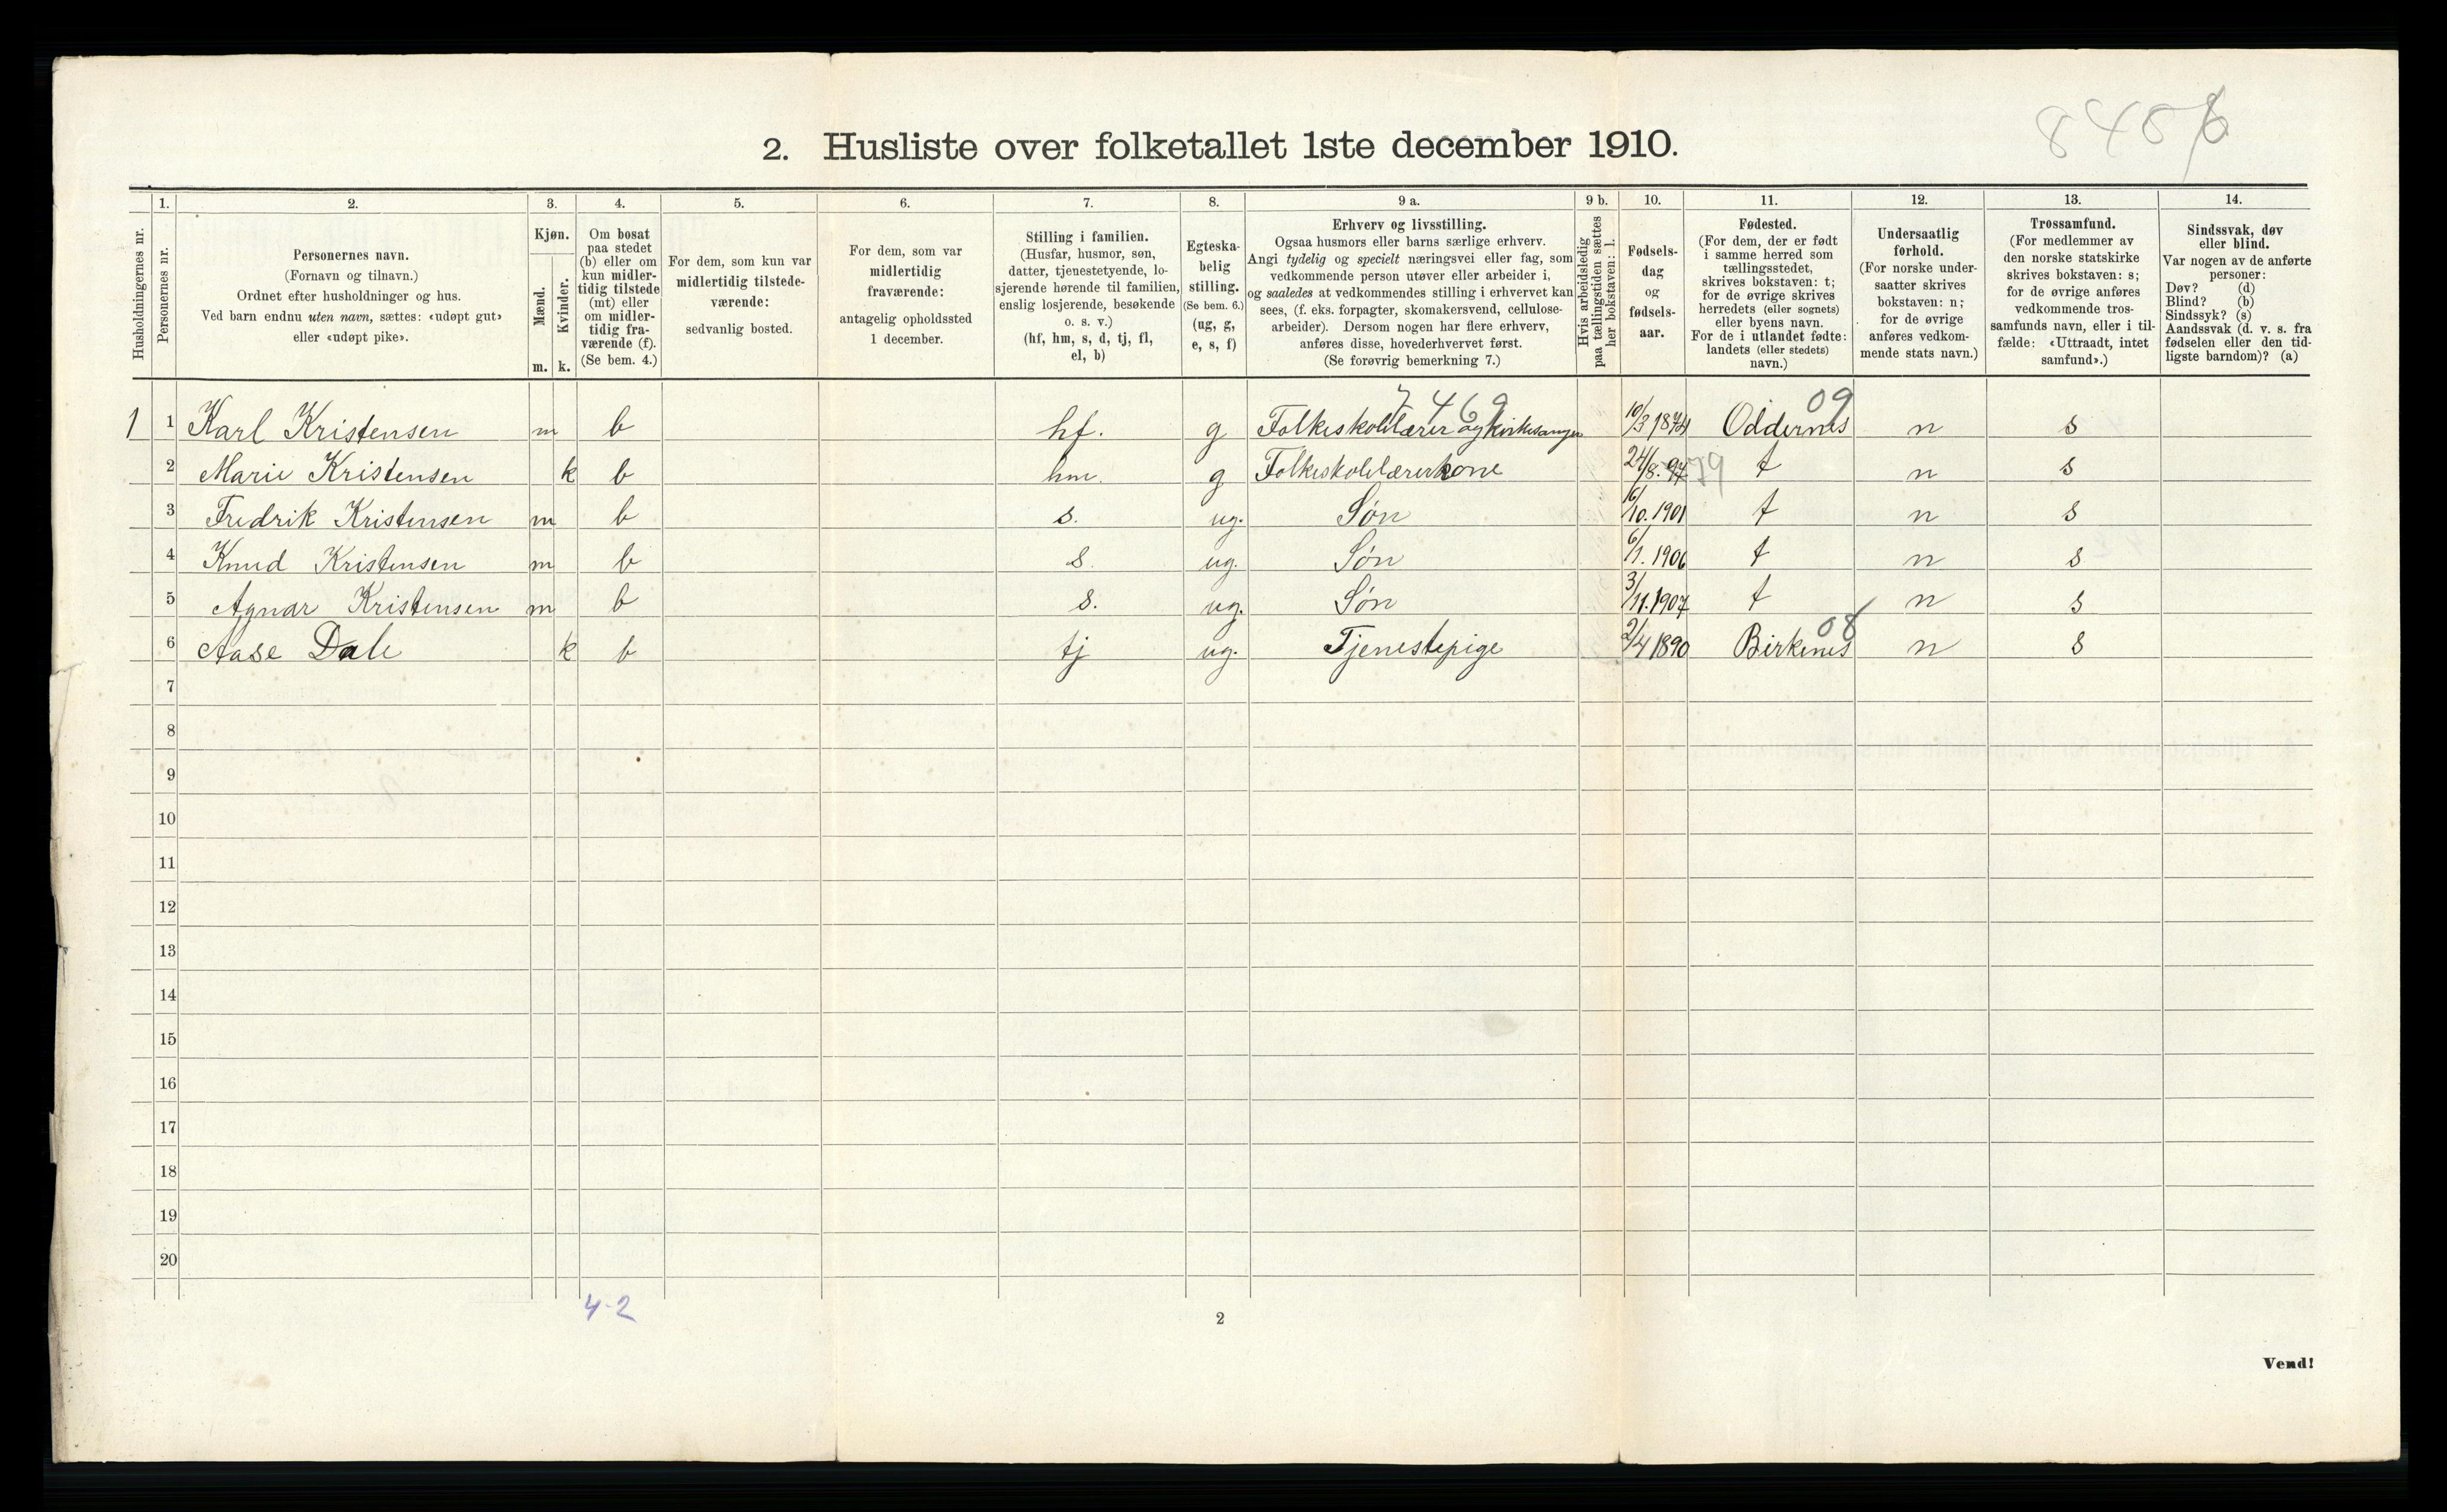 8486
2. Husliste over folketallet 1ste december 1910.
Husholdningernes nr.
1.
Personernes nr.
2.
Personernes navn.
(Fornavn og tilnavn.)
Ordnet efter husholdninger og hus.
Ved barn endnu uten navn, sættes: «udøpt gut»
eller «udøpt pike».
3.
Kjøn.
Mænd.
Kvinder.
m. k.
4.
Om bosat
paa stedet
(b) eller om
kun midler-
tidig tilstede
(mt) eller
om midler-
tidig fra-
værende (f).
(Se bem. 4.)
5.
For dem, som kun var
midlertidig tilstede-
værende:
sedvanlig bosted.
6.
For dem, som var
midlertidig
fraværende:
antagelig opholdssted
1 december.
7.
Stilling i familien.
(Husfar, husmor, søn,
datter, tjenestetyende, lo-
sjerende hørende til familien,
enslig losjerende, besøkende
o. s. v.)
(hf, hm, s, d, tj, fl,
el, b)
8.
Egteska-
belig
stilling.
(Se bem. 6.)
(ug, g,
e, s, f)
9 a.
Erhverv og livsstilling.
Ogsaa husmors eller barns særlige erhverv.
Angi tydelig og specielt næringsvei eller fag, som
vedkommende person utøver eller arbeider i,
og saaledes at vedkommendes stilling i erhvervet kan
sees, (f. eks. forpagter, skomakersvend, cellulose-
arbeider). Dersom nogen har flere erhverv,
anføres disse, hovederhvervet først.
(Se forøvrig bemerkning 7.)
9 b.
Hvis arbeidsledig
paa tællingstiden sættes
her bokstaven: l.
10.
Fødsels-
dag
og
fødsels-
aar.
11.
Fødested.
(For dem, der er født
i samme herred som
tællingsstedet,
skrives bokstaven: t;
for de øvrige skrives
herredets (eller sognets)
eller byens navn.
For de i utlandet fødte:
landets (eller stedets)
navn.)
12.
Undersaatlig
forhold.
(For norske under-
saatter skrives
bokstaven: n;
for de øvrige
anføres vedkom-
mende stats navn.)
13.
Trossamfund.
(For medlemmer av
den norske statskirke
skrives bokstaven: s;
for de øvrige anføres
vedkommende tros-
samfunds navn, eller i til-
fælde: «Uttraadt, intet
samfund».)
14.
Sindssvak, døv
eller blind.
Var nogen av de anførte
personer:
Døv? (d)
Blind? (b)
Sindssyk? (s)
Aandssvak (d. v. s. fra
fødselen eller den tid-
ligste barndom)? (a)
7469 09
1 1 Karl Kristensen m b hf. g Folkeskolelærer og kirkesanger 10/3 1874 Oddernes n s
2 Marie Kristensen k b hm. g Folkeskolelærerkone 24/8. 97 79 t n s
3 Fredrik Kristensen m b s. ug. Søn 16/10. 1901 t n s
4 Knud Kristensen m b s. ug. Søn 6/1. 1906 t n s
5 Agnar Kristensen m b s. ug. Søn 3/11. 1907 t n s
08
6 Aase Dale k b tj ug. Tjenestepige 2/4 1890 Birkenes n s
7
8
9
10
11
12
13
14
15
16
17
18
19
20
4-2
2
Vend!